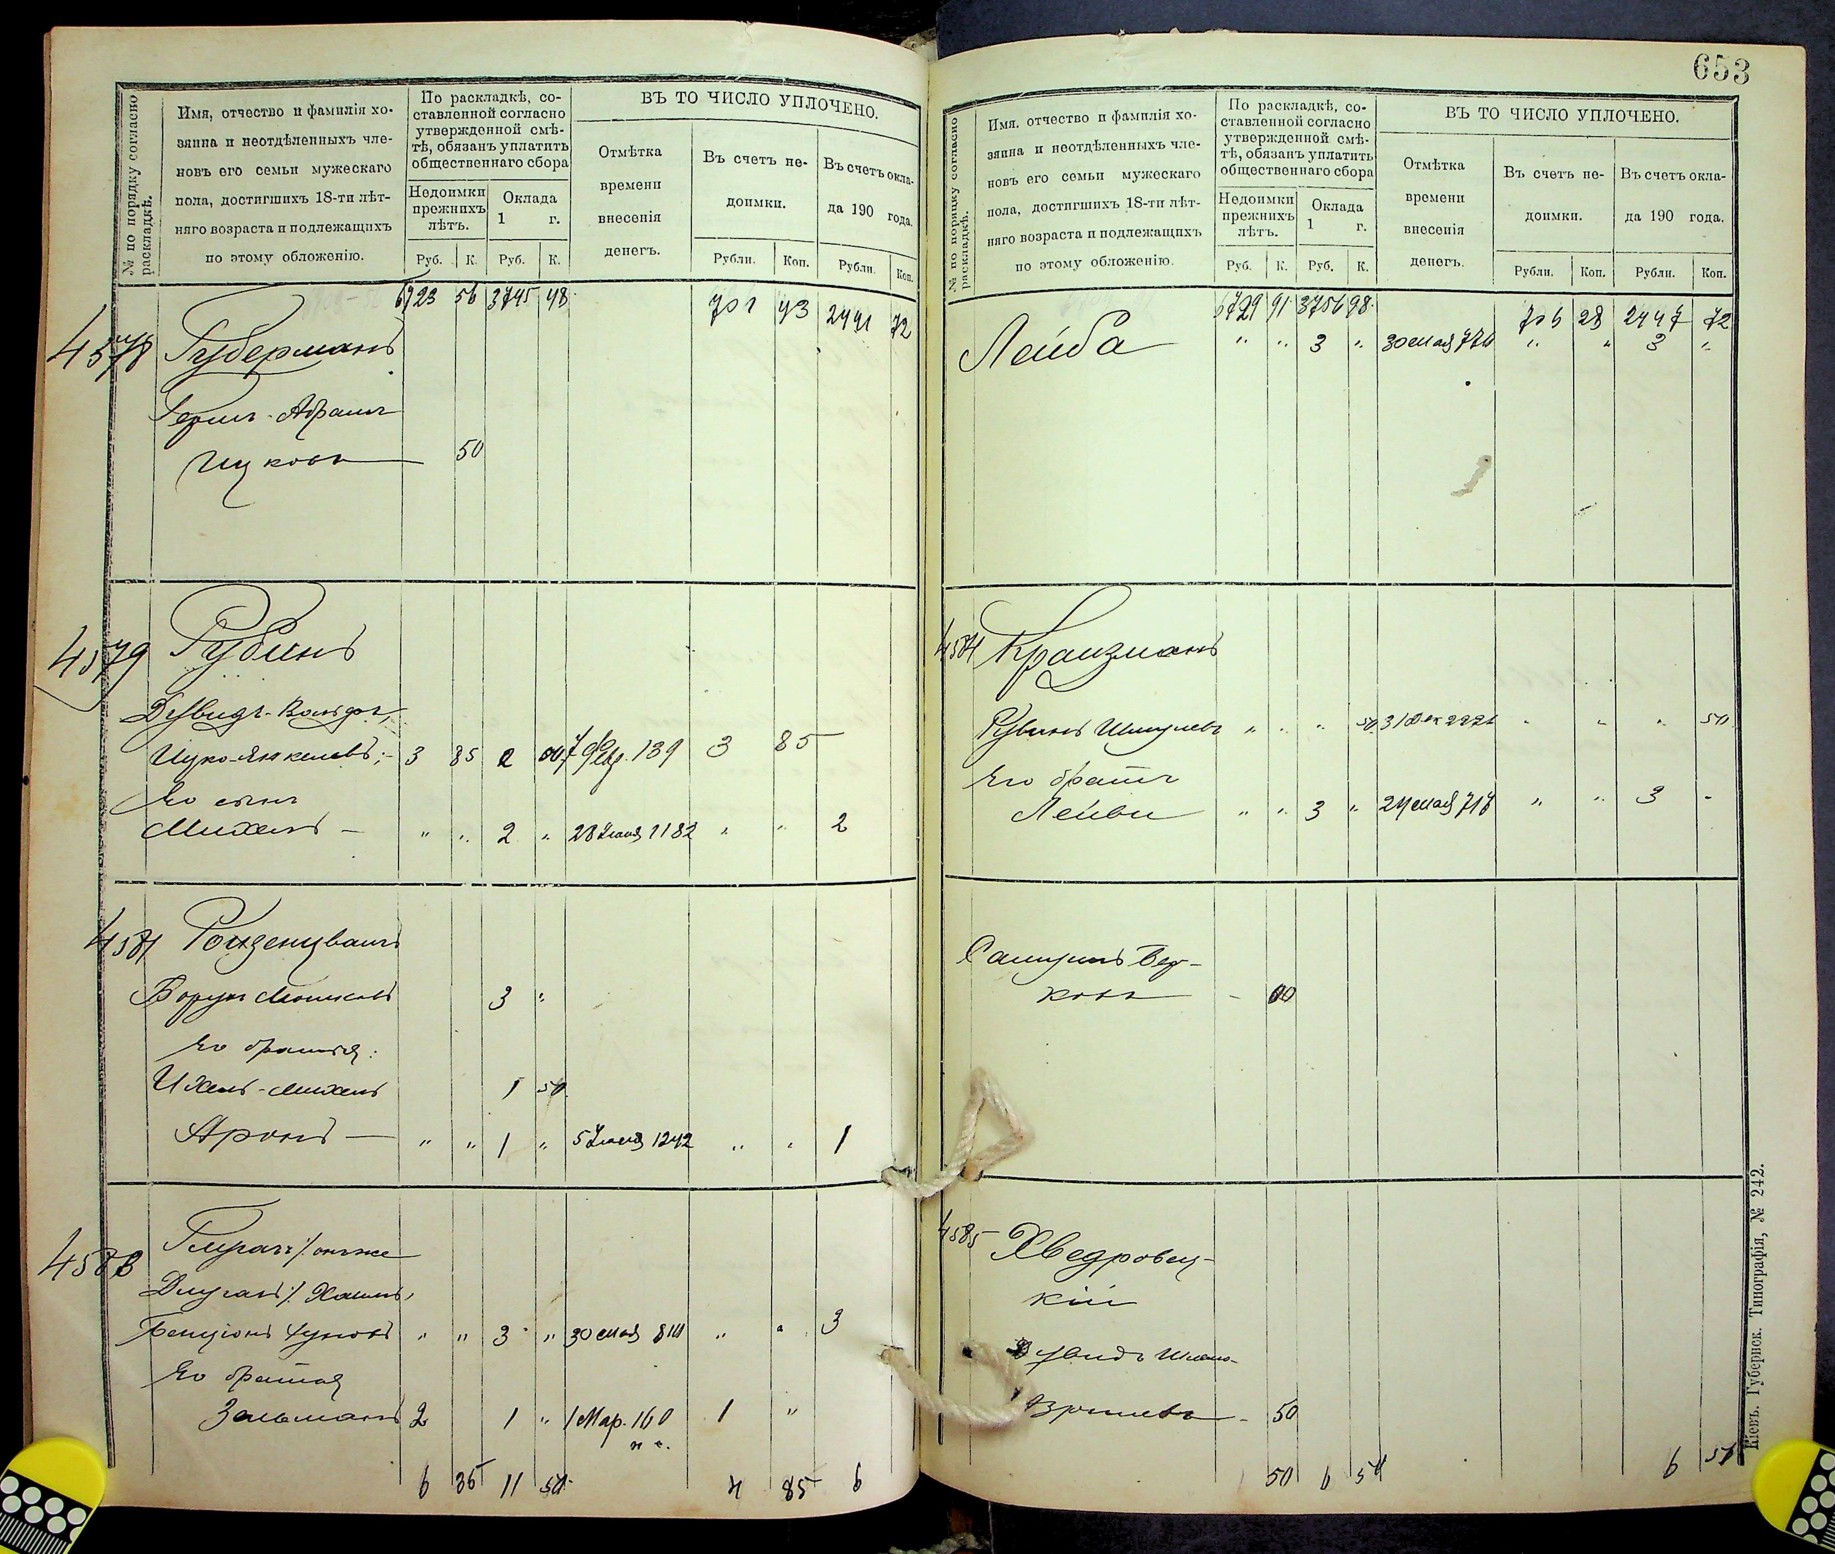 № по порядку согласно раскладкѣ.
Имя, отчество и фамилія хо-
зяина и неотдѣленныхъ чле-
новъ его семьи мужескаго
пола, достигшихъ 18-ти лѣт-
няго возраста и подлежащихъ
по этому обложенію.
По раскладкѣ, со-
ставленной согласно
утвержденной смѣ-
тѣ, обязанъ уплатить
общественнаго сбора
Недоимки
прежнихъ
лѣтъ.
Оклада
1 г.
Руб. К. Руб. К.
ВЪ ТО ЧИСЛО УПЛОЧЕНО.
Отмѣтка
времени
внесенія
денегъ.
Въ счетъ не-
доимки.
Рубли. Коп.
Въ счетъ окла-
да 190 года.
Рубли. Коп.
6723 56 3745 48 701 43 2441 72
4578 Губерманъ
Гершъ-Абрамъ
Ицковъ 50
4579 Рубинъ
Дувидъ-Вольфъ,
Ицко-Янкелевъ, 3 85 2 7 Февр. 139 3 85
Его сынъ
Михель — " " 2 " 28 Іюня 1182 " " 2
Ройзенцвайгъ
Борухъ Мошковъ 3 "
Его братья:
Ихель-Михель 1 50
Аронъ — " " 1 " 5 Іюля 1242 " " 1
Хаимъ,
Бенціонъ " " 3 " 30 мая " " 3
Его братья
Зельманъ 2 1 " 1 Мар. 160 1 "
6 35 11 50 4 85 6
653
№ по порядку согласно раскладкѣ.
Имя, отчество и фамилія хо-
зяина и неотдѣленныхъ чле-
новъ его семьи мужескаго
пола, достигшихъ 18-ти лѣт-
няго возраста и подлежащихъ
по этому обложенію.
По раскладкѣ, со-
ставленной согласно
утвержденной смѣ-
тѣ, обязанъ уплатить
общественнаго сбора
Недоимки
прежнихъ
лѣтъ.
Оклада
1 г.
Руб. К. Руб. К.
ВЪ ТО ЧИСЛО УПЛОЧЕНО.
Отмѣтка
времени
внесенія
денегъ.
Въ счетъ не-
доимки.
Рубли. Коп.
Въ счетъ окла-
да 190 года.
Рубли. Коп.
6729 91 3756 98 706 28 2447 72
Лейба " " 3 " 30 мая " " 3 "
4584 Краизманъ
Рувинъ Шмулевъ " " " 50 31 Дек " " " 50
Его братъ
Лейви " " 3 " 24 мая 717 " " 3 "
Самуилъ Бер-
ковъ
4585 Хведровец-
кій
Дувидъ Шлио-
Эршевъ - 50
50 6 50 6 50
Кіевъ. Губернск. Типографія, № 242.